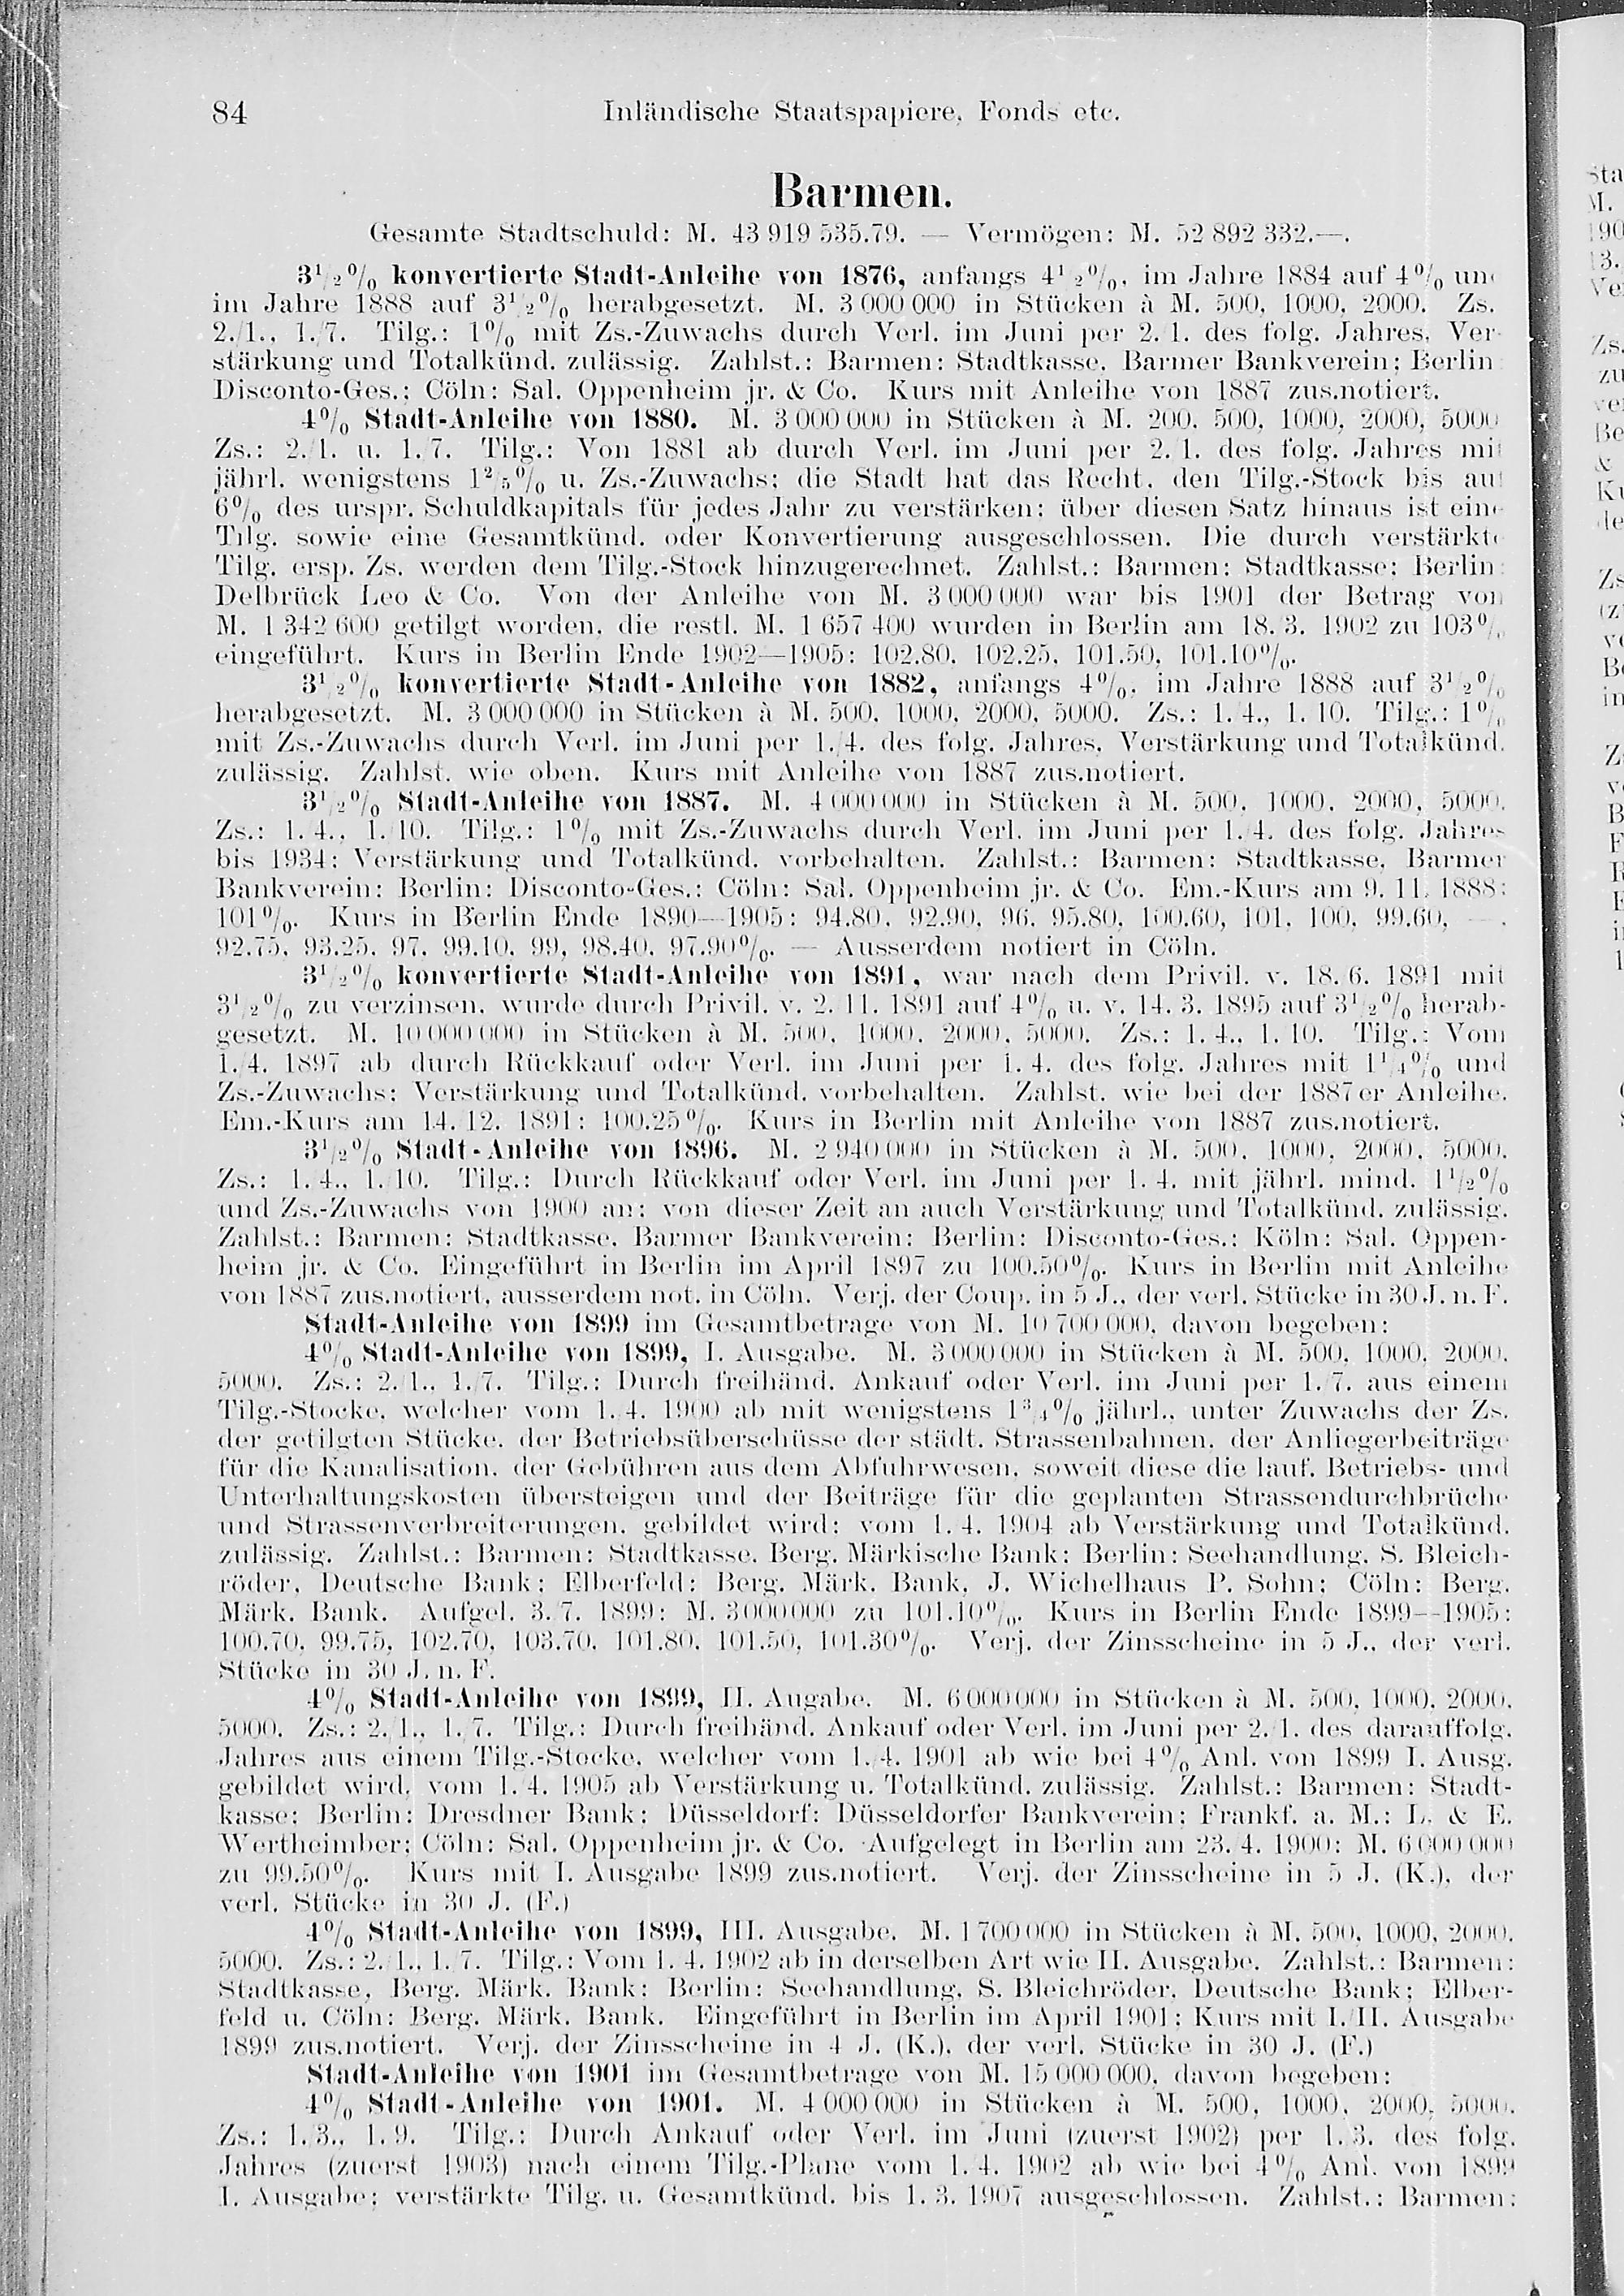 84 Inländische Staatspapiere, Fonds etc.
Barmen.
Gesamte Stadtschuld: M. 43 919 535.79. — Vermögen: M. 52 892 332.—.
3½% konvertierte Stadt-Anleihe von 1876, anfangs 4½%, im Jahre 1884 auf 4% un
im Jahre 1888 auf 3½% herabgesetzt. M. 3 000 000 in Stücken à M. 500, 1000, 2000. Zs.
2./1., 1./7. Tilg.: 1% mit Zs.-Zuwachs durch Verl. im Juni per 2./1. des folg. Jahres, Ver-
stärkung und Totalkünd. zulässig. Zahlst.: Barmen: Stadtkasse, Barmer Bankverein; Berlin:
Disconto-Ges.; Cöln: Sal. Oppenheim jr. & Co. Kurs mit Anleihe von 1887 zus.notiert.
4% Stadt-Anleihe von 1880. M. 3 000 000 in Stücken à M. 200, 500, 1000, 2000, 5000
Zs.: 2./1. u. 1./7. Tilg.: Von 1881 ab durch Verl. im Juni per 2./1. des folg. Jahres mit
jährl. wenigstens 1⅖% u. Zs.-Zuwachs; die Stadt hat das Recht, den Tilg.-Stock bis auf
6% des urspr. Schuldkapitals für jedes Jahr zu verstärken; über diesen Satz hinaus ist eine
Tilg. sowie eine Gesamtkünd. oder Konvertierung ausgeschlossen. Die durch verstärkte
Tilg. ersp. Zs. werden dem Tilg.-Stock hinzugerechnet. Zahlst.: Barmen: Stadtkasse; Berlin:
Delbrück Leo & Co. Von der Anleihe von M. 3 000 000 war bis 1901 der Betrag von
M. 1 342 600 getilgt worden, die restl. M. 1 657 400 wurden in Berlin am 18./3. 1902 zu 103%
eingeführt. Kurs in Berlin Ende 1902—1905: 102.80, 102.25, 101.50, 101.10%.
3½% konvertierte Stadt-Anleihe von 1882, anfangs 4%, im Jahre 1888 auf 3½%
herabgesetzt. M. 3 000 000 in Stücken à M. 500, 1000, 2000, 5000. Zs.: 1./4., 1./10. Tilg.: 1%
mit Zs.-Zuwachs durch Verl. im Juni per 1./4. des folg. Jahres, Verstärkung und Totalkünd.
zulässig. Zahlst. wie oben. Kurs mit Anleihe von 1887 zus.notiert.
3½% Stadt-Anleihe von 1887. M. 4 000 000 in Stücken à M. 500, 1000, 2000, 5000.
Zs.: 1./4., 1./10. Tilg.: 1% mit Zs.-Zuwachs durch Verl. im Juni per 1./4. des folg. Jahres
bis 1934; Verstärkung und Totalkünd. vorbehalten. Zahlst.: Barmen: Stadtkasse, Barmer
Bankverein; Berlin: Disconto-Ges.; Cöln: Sal. Oppenheim jr. & Co. Em.-Kurs am 9./11. 1888:
101%. Kurs in Berlin Ende 1890—1905: 94.80, 92.90, 96, 95.80, 100.60, 101, 100, 99.60, —,
92.75, 93.25, 97, 99.10, 99, 98.40, 97.90%. — Ausserdem notiert in Cöln.
3½% konvertierte Stadt-Anleihe von 1891, war nach dem Privil. v. 18./6. 1891 mit
3½% zu verzinsen, wurde durch Privil. v. 2./11. 1891 auf 4% u. v. 14./3. 1895 auf 3½% herab-
gesetzt. M. 10 000 000 in Stücken à M. 500, 1000, 2000, 5000. Zs.: 1./4., 1./10. Tilg.: Vom
1./4. 1897 ab durch Rückkauf oder Verl. im Juni per 1./4. des folg. Jahres mit 1¼% und
Zs.-Zuwachs; Verstärkung und Totalkünd. vorbehalten. Zahlst. wie bei der 1887er Anleihe.
Em.-Kurs am 14./12. 1891: 100.25%. Kurs in Berlin mit Anleihe von 1887 zus.notiert.
3½% Stadt-Anleihe von 1896. M. 2 940 000 in Stücken à M. 500, 1000, 2000, 5000.
Zs.: 1./4., 1./10. Tilg.: Durch Rückkauf oder Verl. im Juni per 1./4. mit jährl. mind. 1½%
und Zs.-Zuwachs von 1900 an; von dieser Zeit an auch Verstärkung und Totalkünd. zulässig.
Zahlst.: Barmen: Stadtkasse, Barmer Bankverein; Berlin: Disconto-Ges.; Köln: Sal. Oppen-
heim jr. & Co. Eingeführt in Berlin im April 1897 zu 100.50%. Kurs in Berlin mit Anleihe
von 1887 zus.notiert, ausserdem not. in Cöln. Verj. der Coup. in 5 J., der verl. Stücke in 30 J. n. F.
Stadt-Anleihe von 1899 im Gesamtbetrage von M. 10 700 000, davon begeben:
4% Stadt-Anleihe von 1899, I. Ausgabe. M. 3 000 000 in Stücken à M. 500, 1000, 2000,
5000. Zs.: 2./1., 1./7. Tilg.: Durch freihänd. Ankauf oder Verl. im Juni per 1./7. aus einem
Tilg.-Stocke, welcher vom 1./4. 1900 ab mit wenigstens 1¾% jährl., unter Zuwachs der Zs.
der getilgten Stücke, der Betriebsüberschüsse der städt. Strassenbahnen, der Anliegerbeiträge
für die Kanalisation, der Gebühren aus dem Abfuhrwesen, soweit diese die lauf. Betriebs- und
Unterhaltungskosten übersteigen und der Beiträge für die geplanten Strassendurchbrüche
und Strassenverbreiterungen, gebildet wird; vom 1./4. 1904 ab Verstärkung und Totalkünd.
zulässig. Zahlst.: Barmen: Stadtkasse, Berg. Märkische Bank; Berlin: Seehandlung, S. Bleich-
röder, Deutsche Bank; Elberfeld: Berg. Märk. Bank, J. Wichelhaus P. Sohn; Cöln: Berg.
Märk. Bank. Aufgel. 3./7. 1899: M. 3 000 000 zu 101.10%. Kurs in Berlin Ende 1899—1905:
100.70, 99.75, 102.70, 103.70, 101.80, 101.50, 101.30%. Verj. der Zinsscheine in 5 J., der verl.
Stücke in 30 J. n. F.
4% Stadt-Anleihe von 1899, II. Augabe. M. 6 000 000 in Stücken à M. 500, 1000, 2000,
5000. Zs.: 2./1., 1./7. Tilg.: Durch freihänd. Ankauf oder Verl. im Juni per 2./1. des darauffolg.
Jahres aus einem Tilg.-Stocke, welcher vom 1./4. 1901 ab wie bei 4% Anl. von 1899 I. Ausg.
gebildet wird, vom 1./4. 1905 ab Verstärkung u. Totalkünd. zulässig. Zahlst.: Barmen: Stadt-
kasse; Berlin: Dresdner Bank; Düsseldorf: Düsseldorfer Bankverein; Frankf. a. M.: L. & E.
Wertheimber; Cöln: Sal. Oppenheim jr. & Co. Aufgelegt in Berlin am 23./4. 1900: M. 6 000 000
zu 99.50%. Kurs mit I. Ausgabe 1899 zus.notiert. Verj. der Zinsscheine in 5 J. (K.), der
verl. Stücke in 30 J. (F.)
4% Stadt-Anleihe von 1899, III. Ausgabe. M. 1 700 000 in Stücken à M. 500, 1000, 2000,
5000. Zs.: 2./1., 1./7. Tilg.: Vom 1./4. 1902 ab in derselben Art wie II. Ausgabe. Zahlst.: Barmen:
Stadtkasse, Berg. Märk. Bank; Berlin: Seehandlung, S. Bleichröder, Deutsche Bank; Elber-
feld u. Cöln: Berg. Märk. Bank. Eingeführt in Berlin im April 1901; Kurs mit I./II. Ausgabe
1899 zus.notiert. Verj. der Zinsscheine in 4 J. (K.), der verl. Stücke in 30 J. (F.)
Stadt-Anleihe von 1901 im Gesamtbetrage von M. 15 000 000, davon begeben:
4% Stadt-Anleihe von 1901. M. 4 000 000 in Stücken à M. 500, 1000, 2000, 5000.
Zs.: 1./3., 1./9. Tilg.: Durch Ankauf oder Verl. im Juni (zuerst 1902) per 1./3. des folg.
Jahres (zuerst 1903) nach einem Tilg.-Plane vom 1./4. 1902 ab wie bei 4% Anl. von 1899
I. Ausgabe; verstärkte Tilg. u. Gesamtkünd. bis 1./3. 1907 ausgeschlossen. Zahlst.: Barmen: